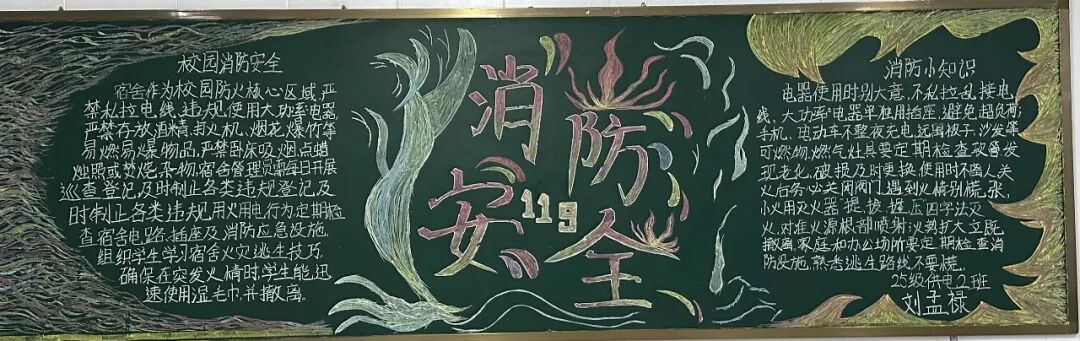 校园消防安全
宿舍作为校园防火核心区域,严
禁私拉电线、违规使用大功率电器,
严禁存放酒精、打火机、烟花、爆竹等
易燃易爆物品,严禁卧床吸烟、点蜡
烛照或焚烧杂物,宿舍管理员需每日开展
巡查登记,及时制止各类违规登记,及
时制止各类违规用火用电行为定期检
查宿舍电路、插座及消防应急设施,
组织学生学习宿舍火灾逃生技巧,
确保在突发火情时,学生能迅
速使用湿毛巾,并撤离。
消防
安全
119
消防小知识
电器使用时别大意,不私拉乱接电
线,大功率电器单独用插座,避免超负荷,
手机、电动车不整夜充电,远离被子、沙发等
可燃物,燃气灶具要定期检查软管,发
现老化、破损及时更换,使用时不离人,关
火后务必关闭阀门,遇到火情别慌张,
小火用灭火器提、拔、握、压四字法灭
火,对准火源根部喷射,火势扩大立既
撤离,家庭和办公场所要定期检查消
防设施,熟悉逃生路线不要慌.
25级供电2班
刘孟禄